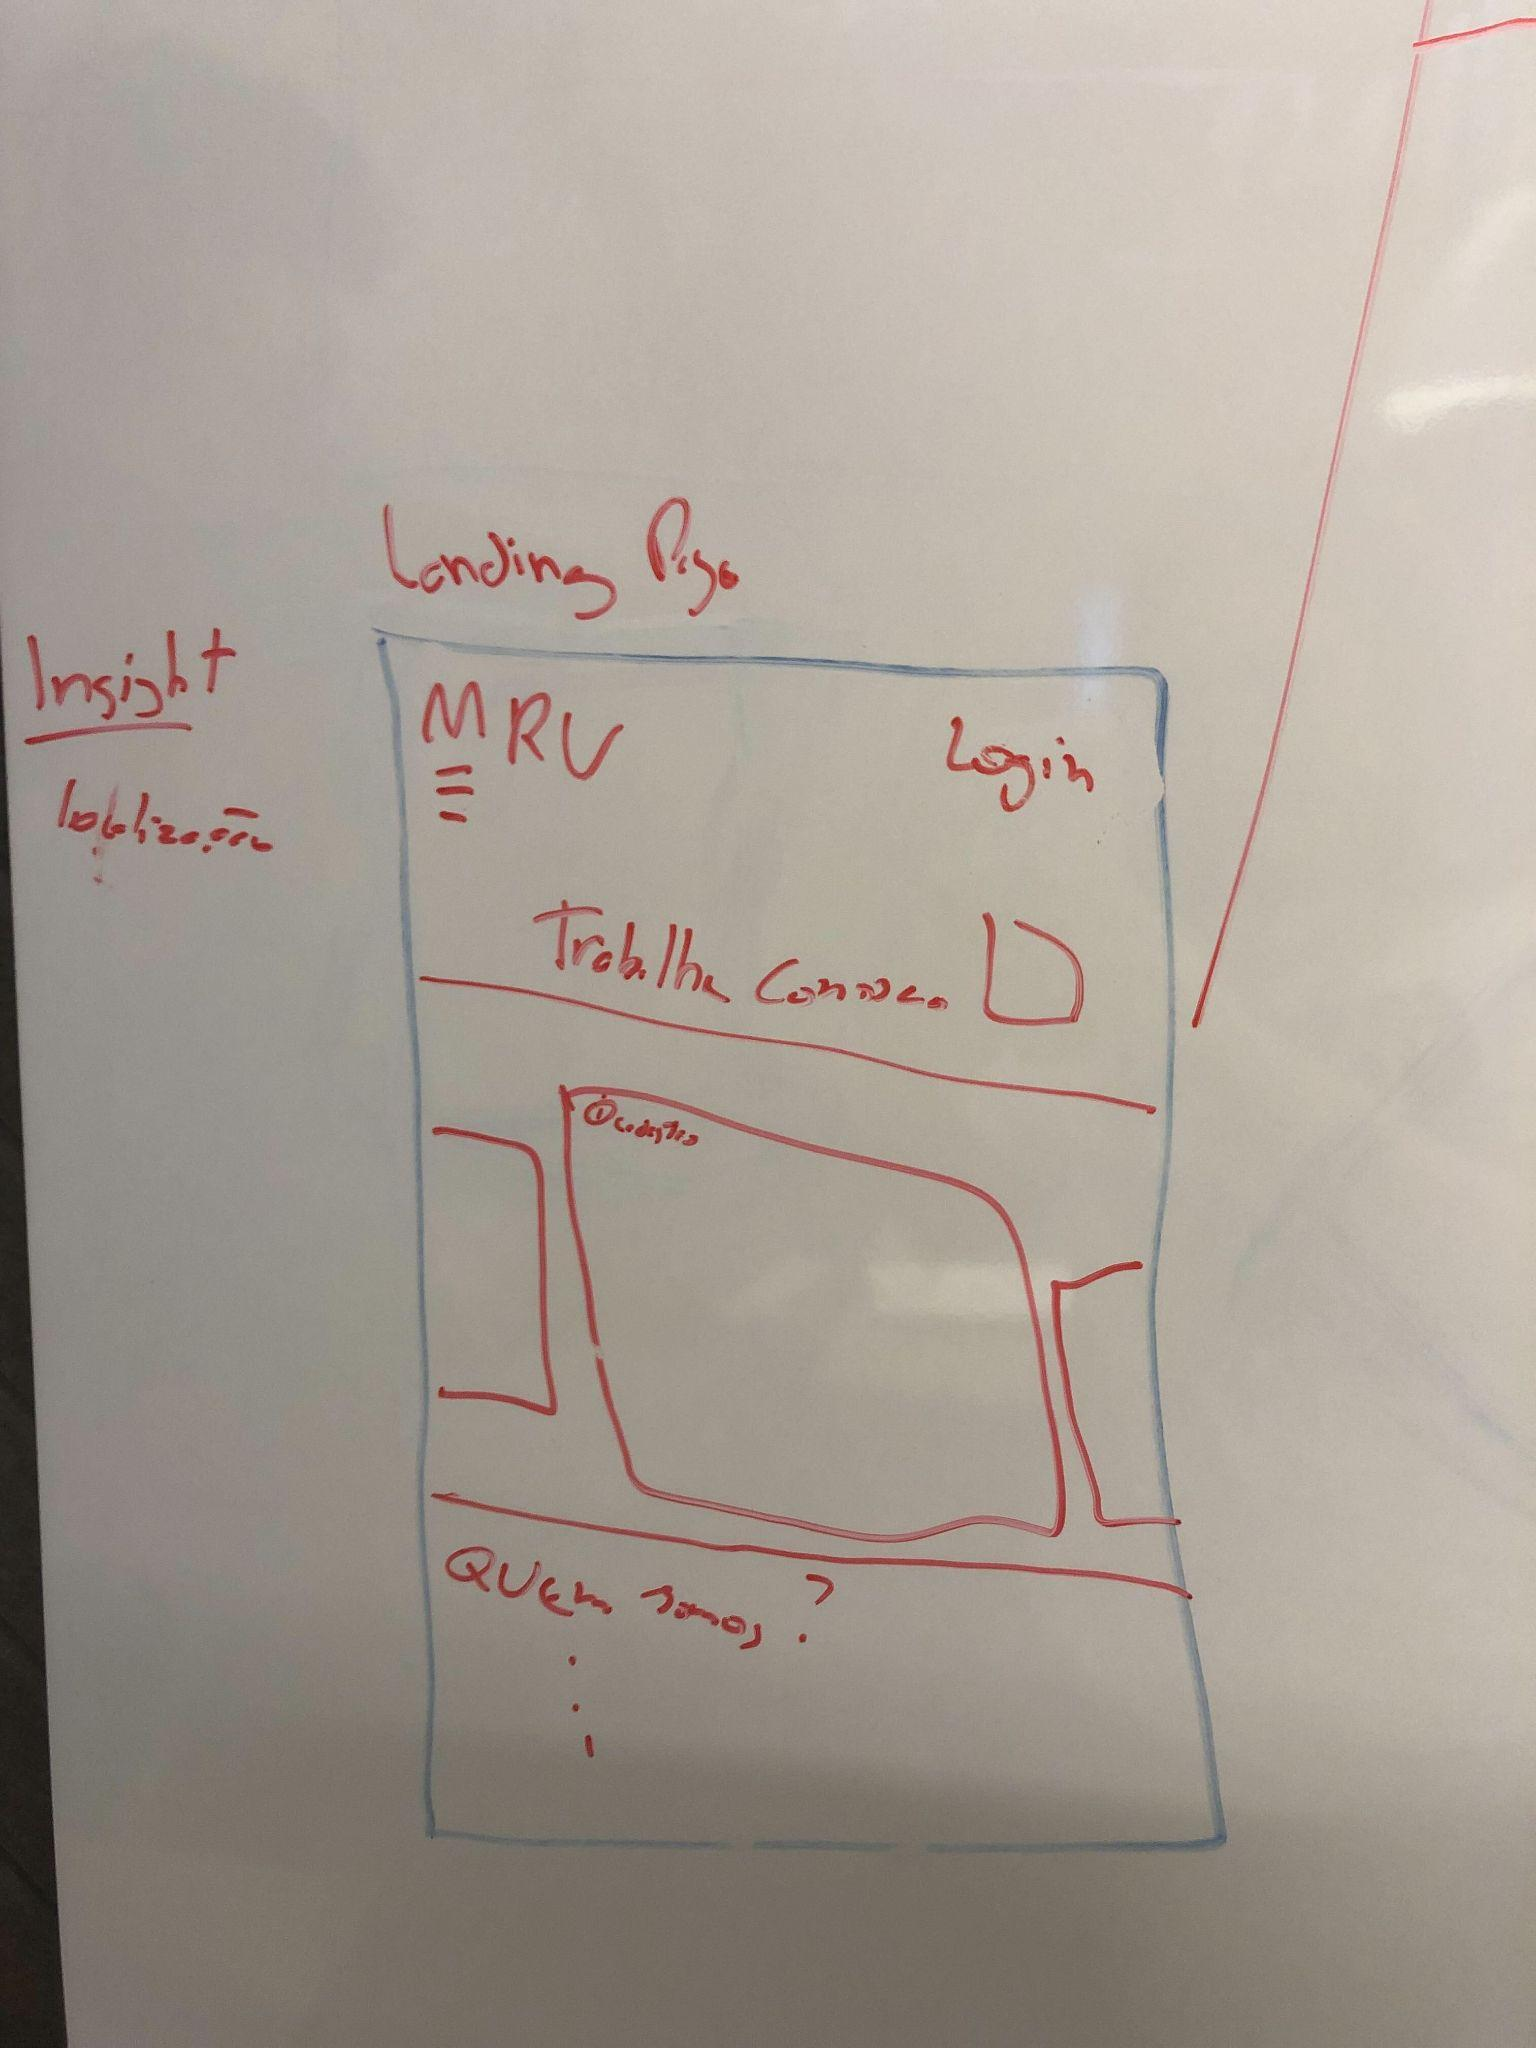 Landing Page
Insight
MRV
Login
Trabalhe Conosco
① cadastro
Quem somos?